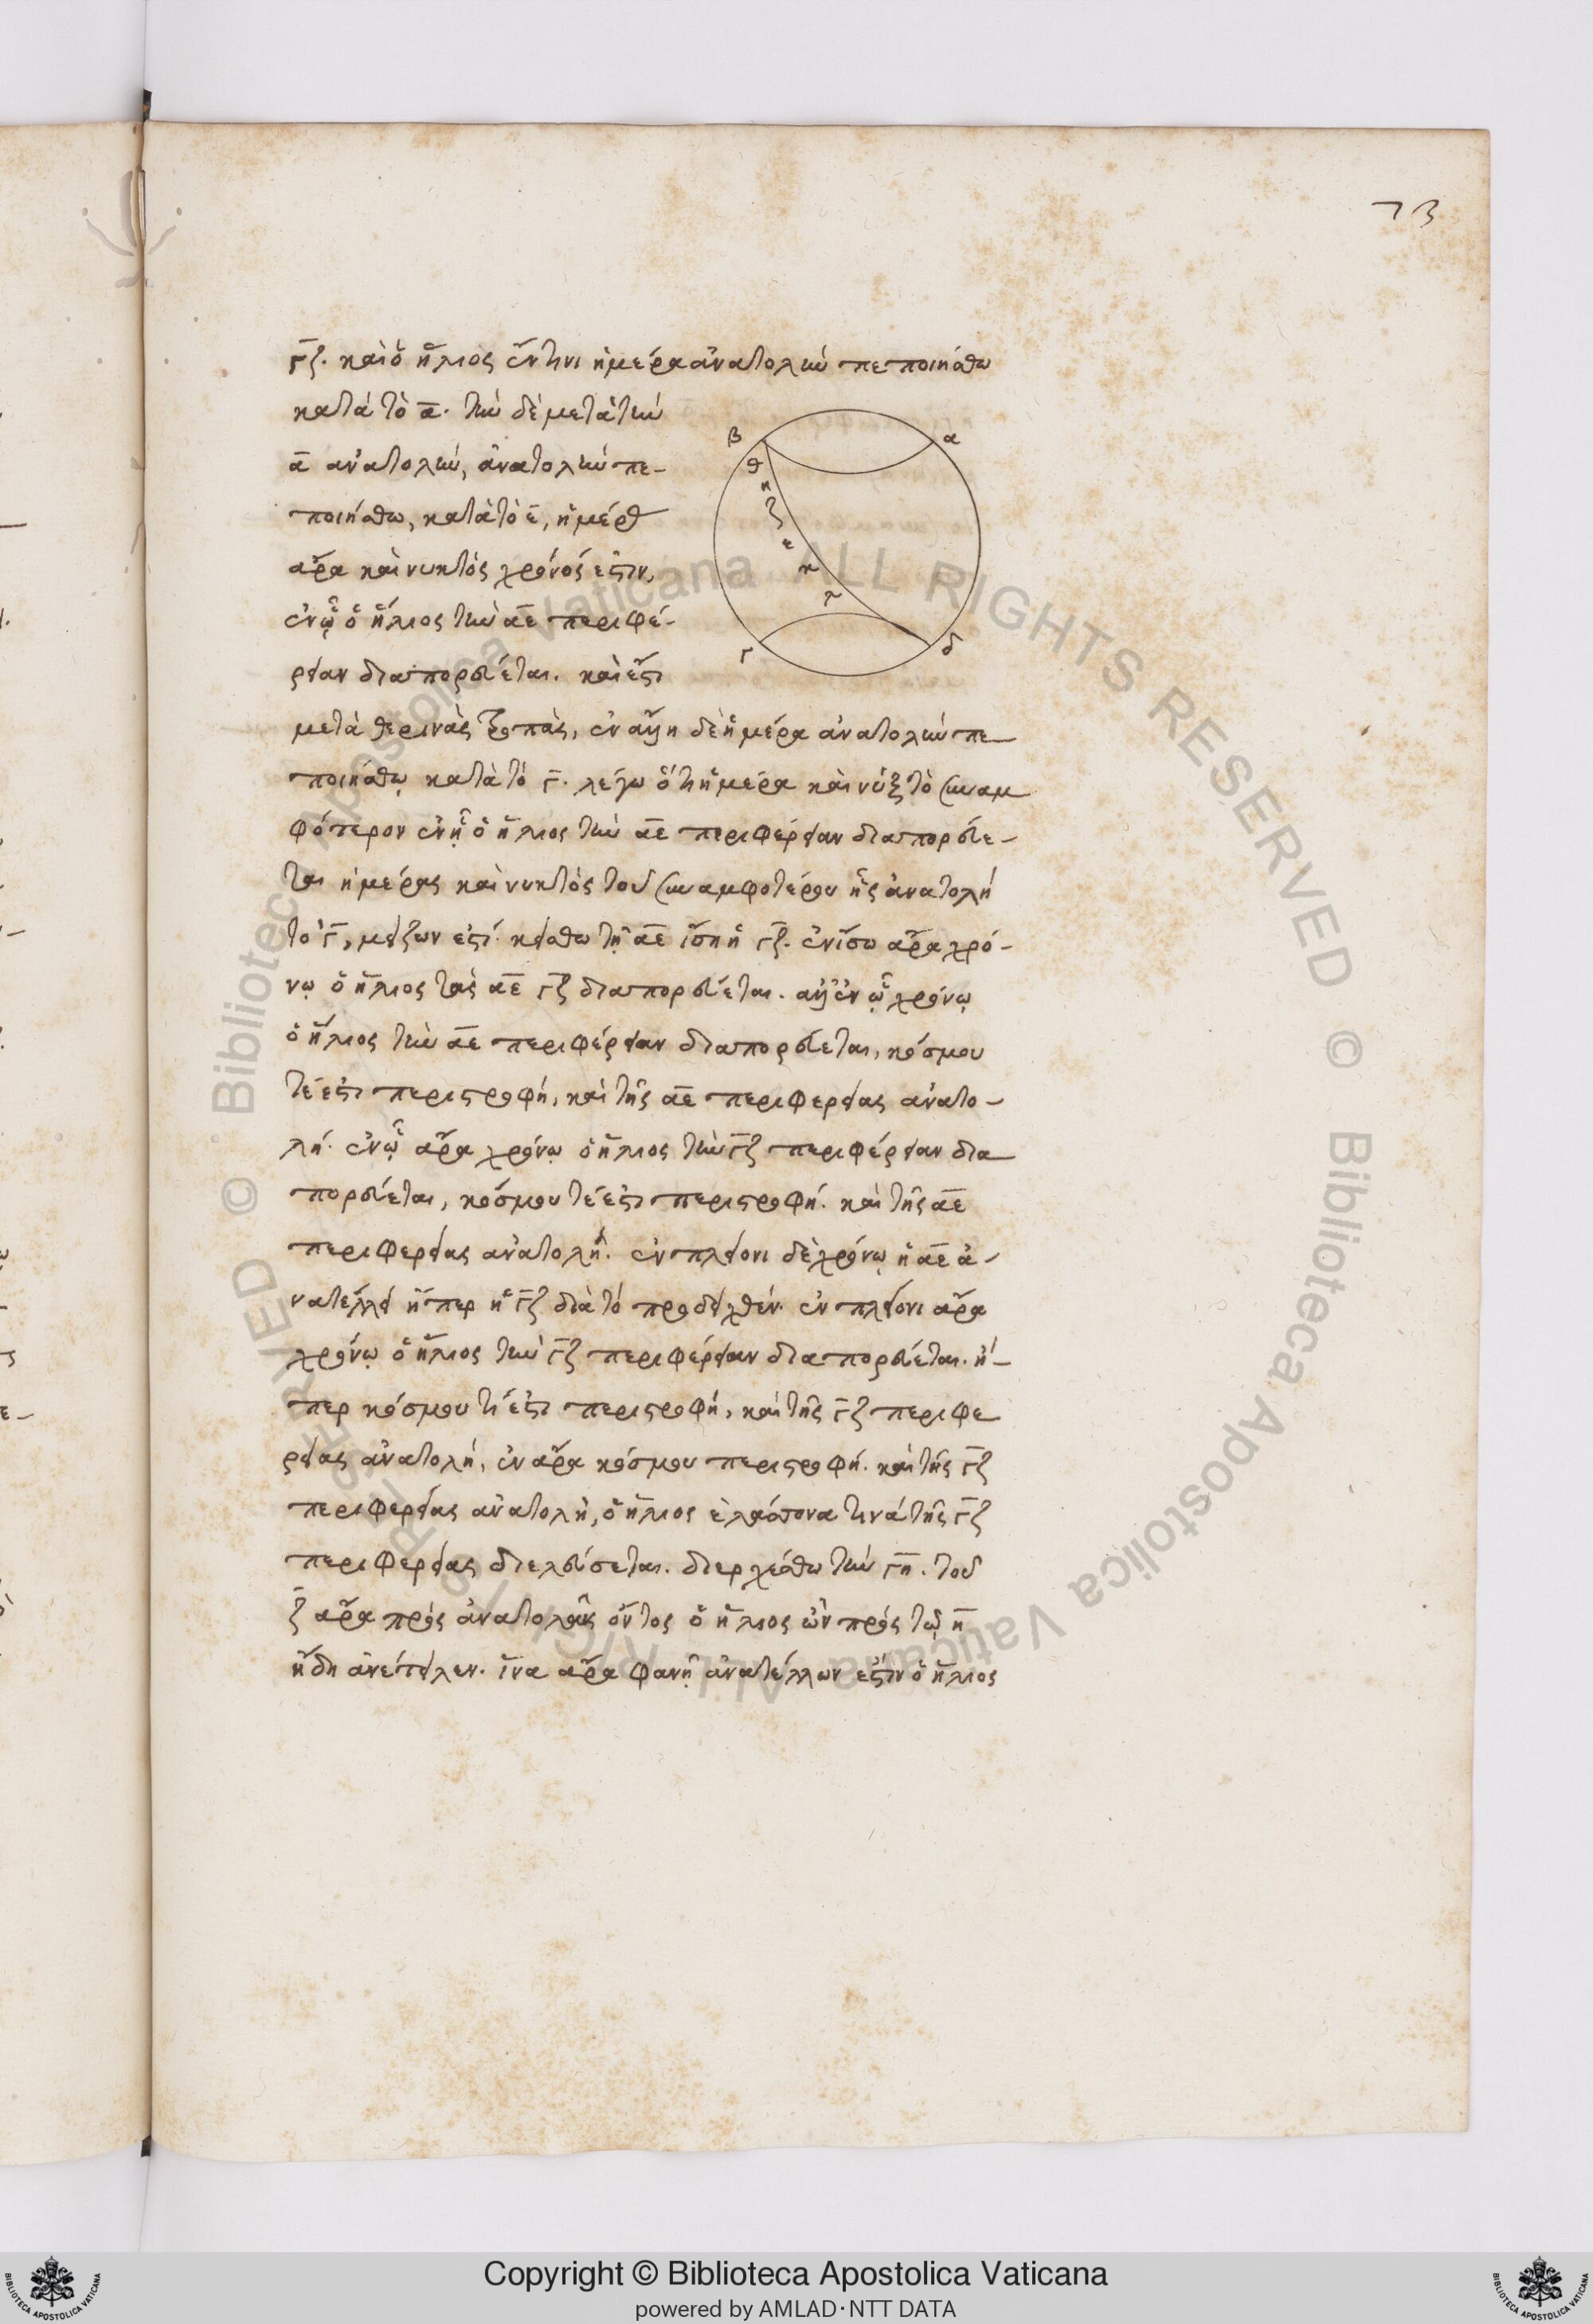 73
γ̅ζ̅. καὶ ὁ ἥλιος ἔν τινι ἡμέρα ἀνατολὴν πεποιήσθω
κατὰ τὸ α̅. τὴν δὲ μετὰ τὴν
α̅ ἀνατολὴν, ἀνατολὴν πε-
ποιήσθω, κατὰ τὸ ε̅, ἡμέρας
ἄρα καὶ νυκτὸς χρόνός ἐστιν,
ἐν ᾧ ὁ ἥλιος τὴν α̅ε̅ περιφέ-
ρειαν διαπορεύεται. καὶ ἔστι
μετὰ θερινὰς τροπὰς, ἐν αὐτῇ δὲ ἡμέρα ἀνατολὴν πε
ποιήσθω κατὰ τὸ γ̅. λέγω ὅτι ἡμέρα καὶ νὺξ τὸ συναμ
φότερον ἐν ᾗ ὁ ἥλιος τὴν α̅ε̅ περιφέρειαν διαπορεύε-
ται ἡμέρας καὶ νυκτὸς τοῦ συναμφοτέρου ἧς ἀνατολή
τὸ γ̅, μείζων ἐστί. κείσθω τῇ α̅ε̅ ἴση ἡ γ̅ζ̅. ἐν ἴσω ἄρα χρό-
νῳ ὁ ἥλιος τὰς α̅ε̅ γ̅ζ̅ διαπορεύεται. ἀλλ' ἐν ᾧ χρόνῳ
ὁ ἥλιος τὴν α̅ε̅ περιφέρειαν διαπορεύεται, κόσμου
τέ ἐστι περιστροφή, καὶ τῆς α̅ε̅ περιφερείας ἀνατο-
λή. ἐν ᾧ ἄρα χρόνῳ ὁ ἥλιος τὴν γ̅ζ̅ περιφέρειαν δια
πορεύεται, κόσμου τέ ἐστι περιστροφή. καὶ τῆς α̅ε̅
περιφερείας ἀνατολή. ἐν πλείονι δὲ χρόνῳ ἡ α̅ε̅ ἀ-
νατέλλει ἤπερ ἡ γ̅ζ̅ διὰ τὸ προδειχθέν. ἐν πλείονι ἄρα
χρόνῳ ὁ ἥλιος τὴν γ̅ζ̅ περιφέρειαν διαπορεύεται. ἤ-
περ κόσμου τέ ἐστι περιστροφή, καὶ τῆς γ̅ζ̅ περιφε
ρείας ἀνατολή, ἐν ἄρα κόσμου περιστροφῇ. καὶ τῆς γ̅ζ̅
περιφερείας ἀνατολῇ, ὁ ἥλιος ἐλάσσονα τινὰ τῆς γ̅ζ̅
περιφερείας διελεύσεται. διερχέσθω τὴν γ̅η̅. τοῦ
ζ̅ ἄρα πρὸς ἀνατολαῖς ὄντος ὁ ἥλιος ὢν πρὸς τῷ η̅
ἤδη ἀνέτειλεν. ἵνα ἄρα φανῇ ἀνατέλλων ἐστὶν ὁ ἥλιος
β
α
θ
η
ζ
ε
κ
λ
γ
δ
Copyright © Biblioteca Apostolica Vaticana
powered by AMLAD·NTT DATA
© Biblioteca Apostolica Vaticana ALL RIGHTS RESERVED